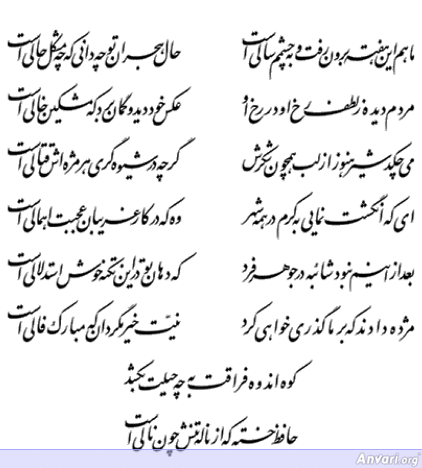 ماهم این هفته برون رفت و به چشم سالی است حال هجران تو چه دانی که چه مشکل حالی است
مردم دیده ز لطف رخ او در رخ او عکس خود دید و گمان برد که مشکین خالی است
می چکد شیر هنوز از لب همچون شکرش گرچه در شیوه گری هر مژه اش قتالی است
ای که انگشت نمایی به کرم در همه شهر وه که در کار غریبان عجبت اهمالی است
بعد از اینم نبود شائبه در جوهر فرد که دهان تو در این نکته خوش استدلالی است
مژده دادند که بر ما گذری خواهی کرد نیت خیر مگردان که مبارک فالی است
کوه اندوه فراقت به چه حیلت بکشد
حافظ خسته که از ناله تنش چون نالی است
Anvari.org